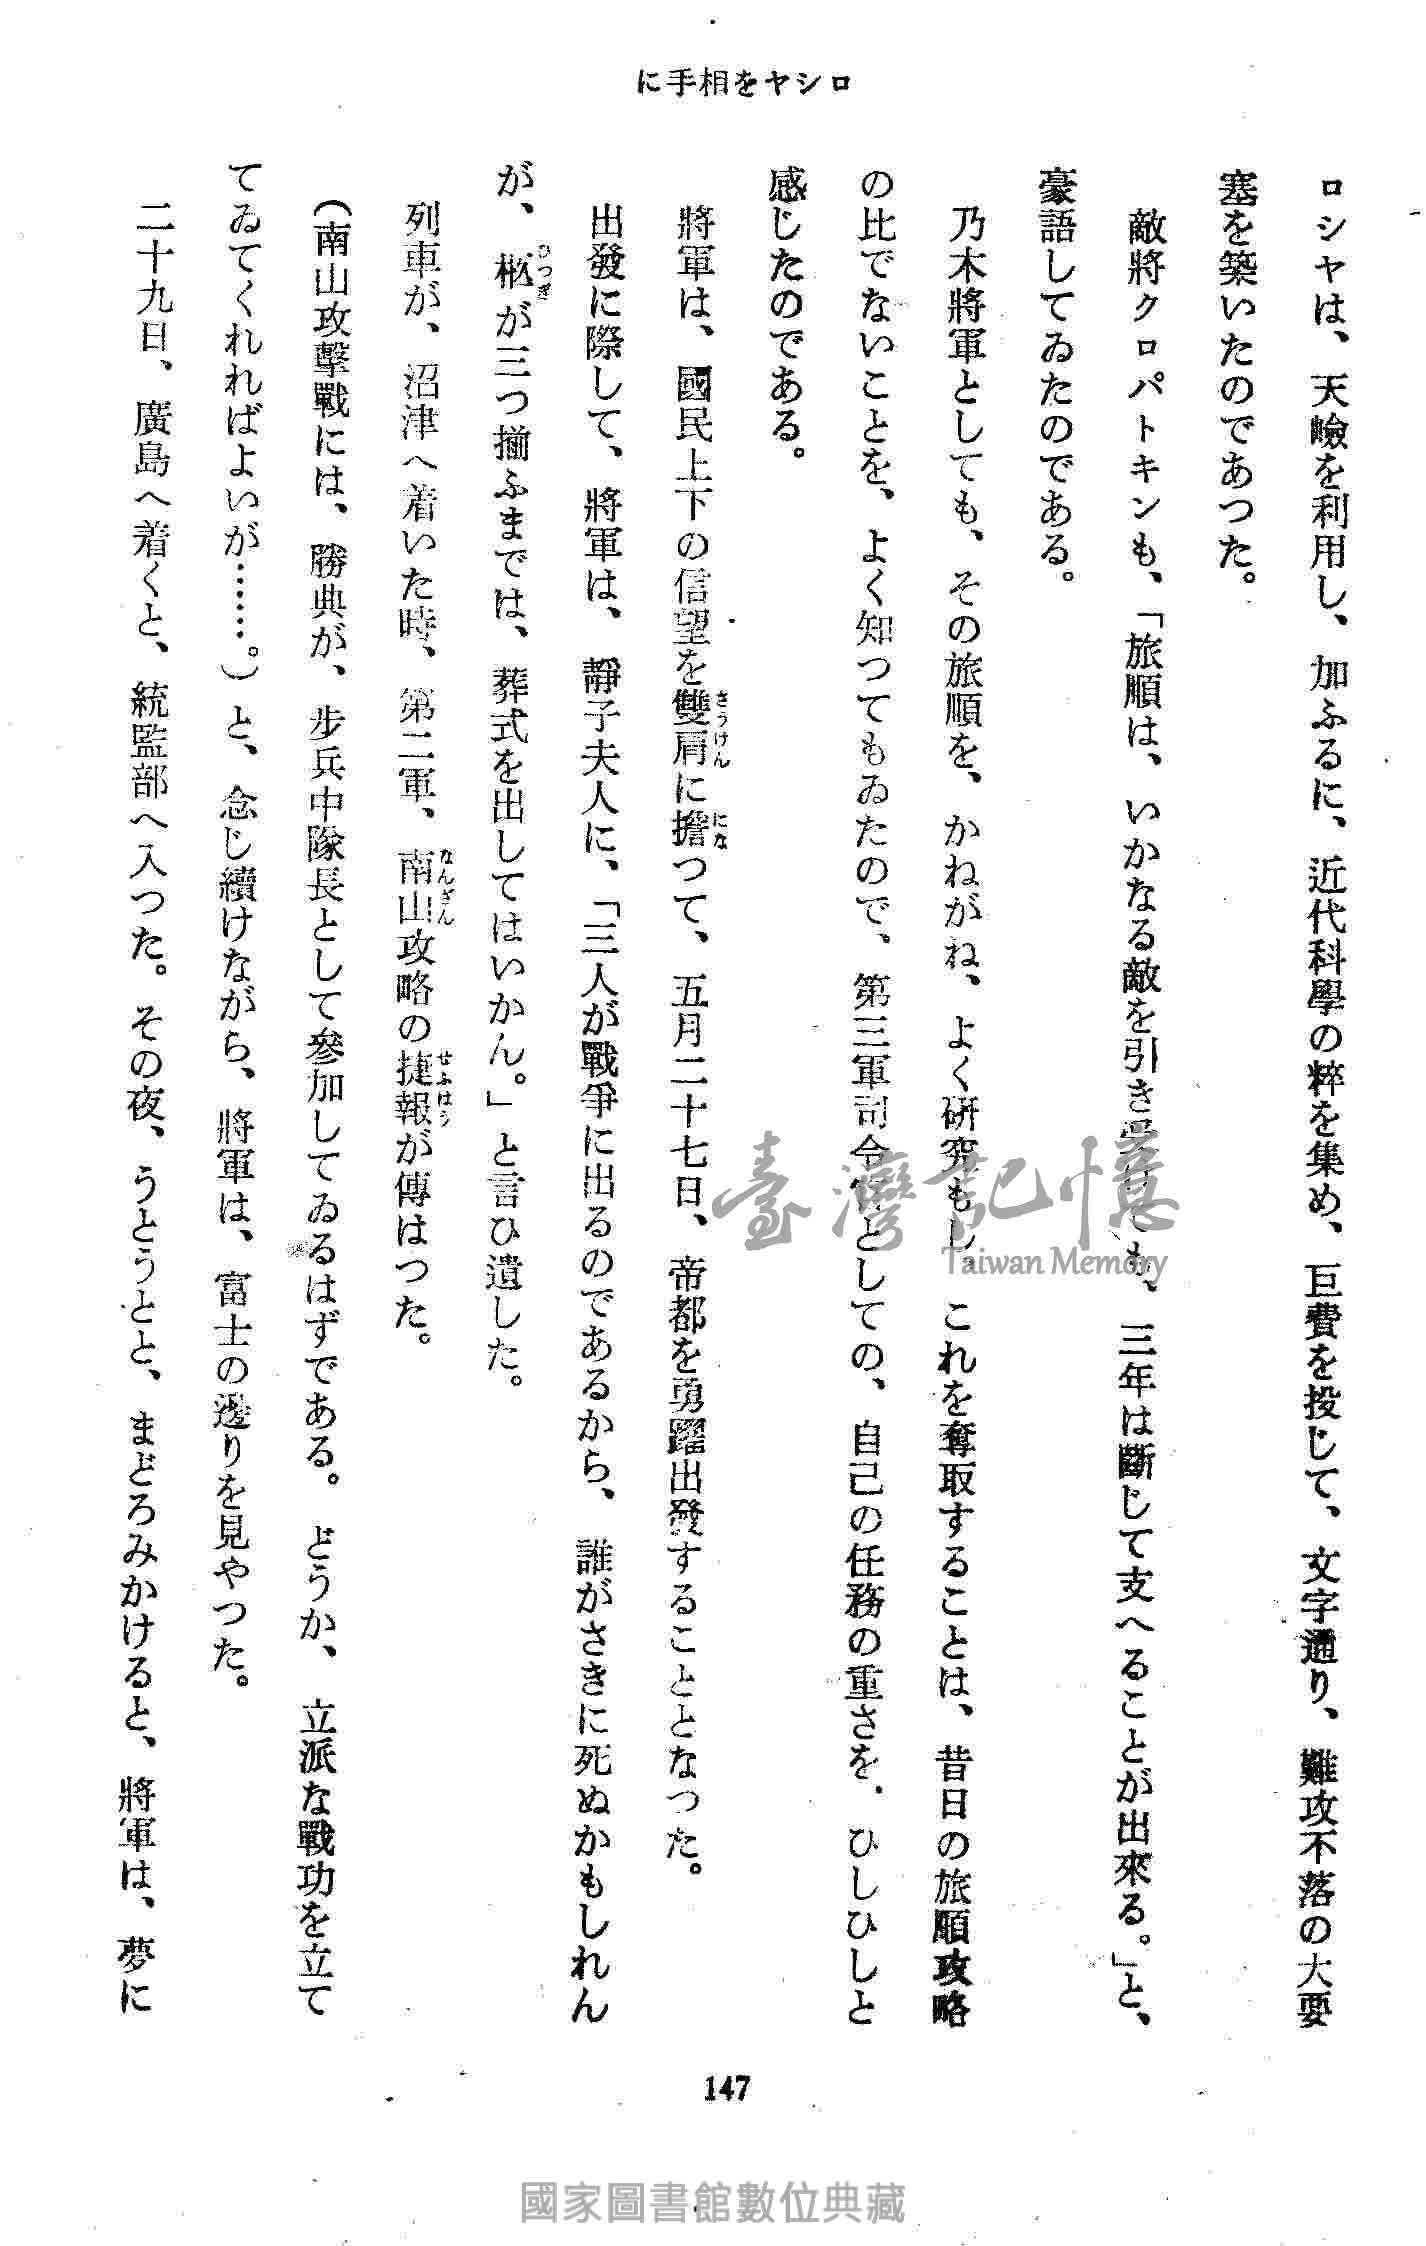 ロシヤを相手に
ロシヤは、天嶮を利用し、加ふるに、近代科學の粹を集め、巨費を投じて、文字通り、難攻不落の大要
塞を築いたのであつた。
敵將クロパトキンも、「旅順は、いかなる敵を引き受けても、三年は斷じて支へることが出來る。」と、
豪語してゐたのである。
乃木將軍としても、その旅順を、かねがね、よく研究もし、これを奪取することは、昔日の旅順攻略
の比でないことを、よく知つてもゐたので、第三軍司令官としての、自己の任務の重さを、ひしひしと
感じたのである。
將軍は、國民上下の信望を雙肩に擔つて、五月二十七日、帝都を勇躍出發することとなつた。
さうけん
にな
出發に際して、將軍は、靜子夫人に、「三人が戰爭に出るのであるから、誰がさきに死ぬかもしれん
が、柩が三つ揃ふまでは、葬式を出してはいかん。」と言ひ遺した。
ひつぎ
列車が、沼津へ着いた時、第二軍、南山攻略の捷報が傳はつた。
なんざん
せふほう
(南山攻擊戰には、勝典が、步兵中隊長として參加してゐるはずである。どうか、立派な戰功を立て
てゐてくれればよいが……。)と、念じ續けながら、將軍は、富士の邊りを見やつた。
二十九日、廣島へ着くと、統監部へ入つた。その夜、うとうとと、まどろみかけると、將軍は、夢に
147
臺灣記憶
Taiwan Memory
國家圖書館數位典藏